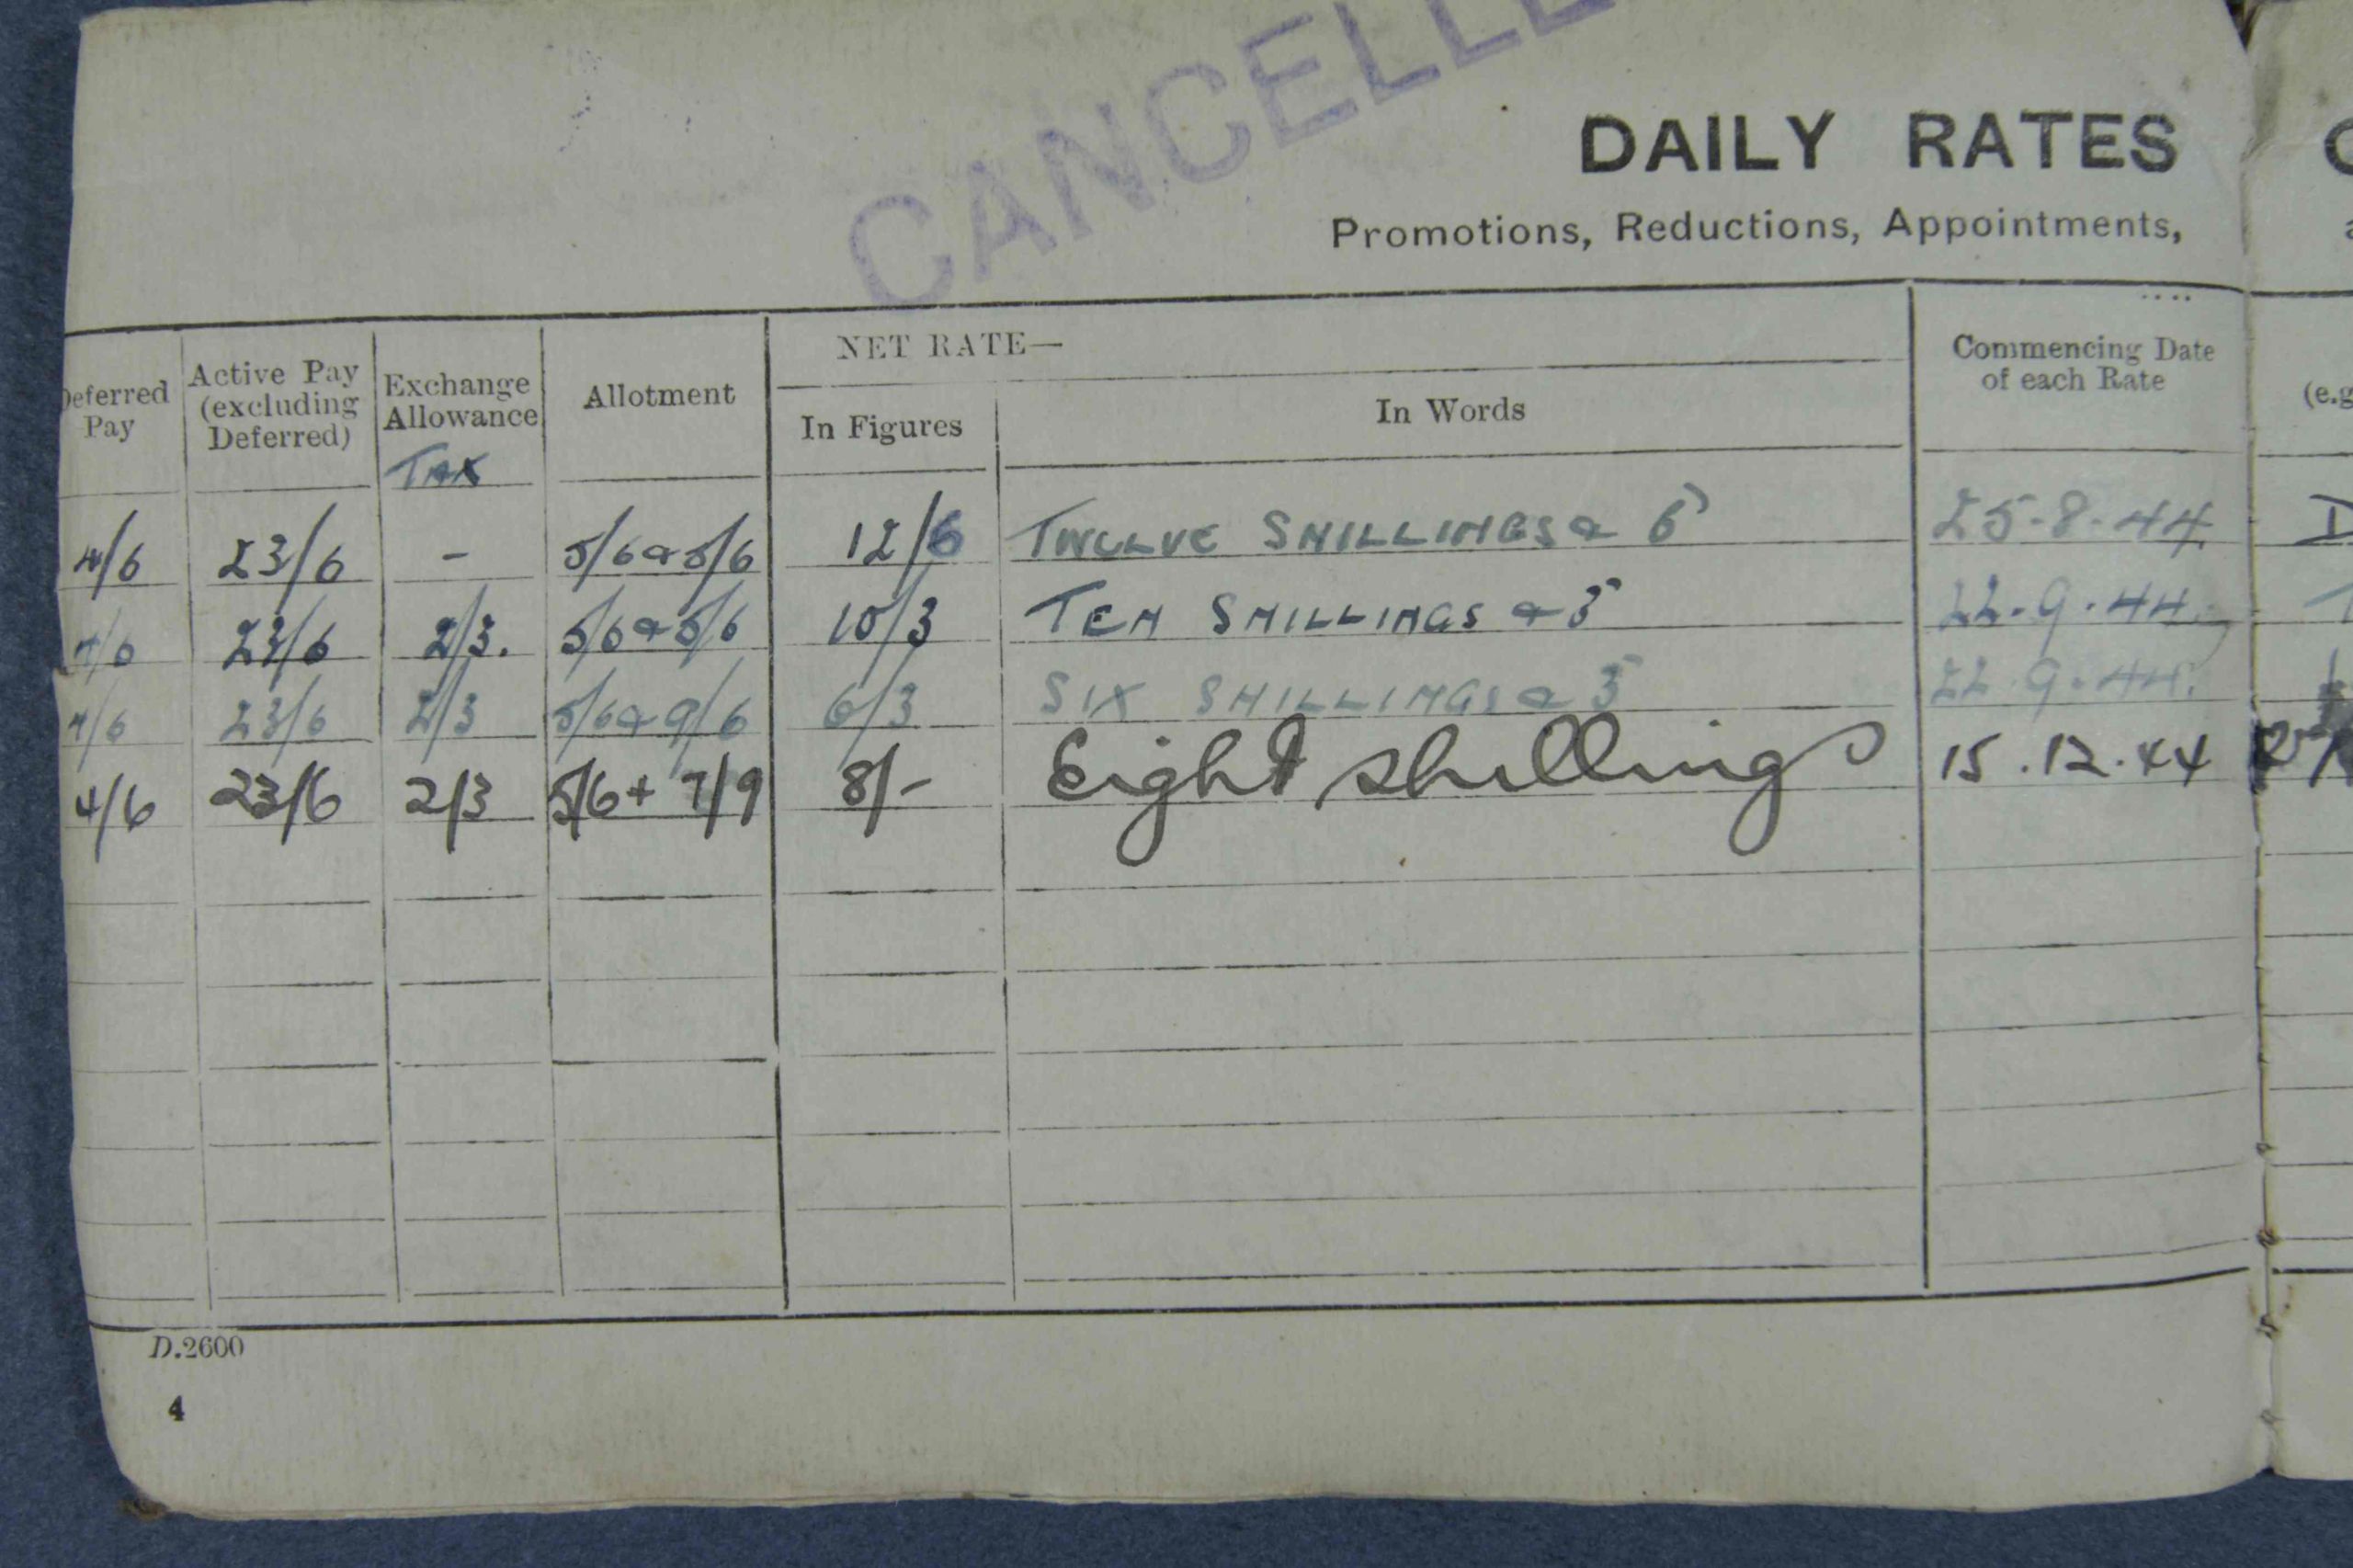 CANCELLE
DAILY RATES
Promotions, Reductions, Appointments,
Deferred Pay | Active Pay (excluding Deferred) | Exchange Allowance TAX | Allotment | NET RATE— In Figures | In Words | Commencing Date of each Rate | (e.g
4/6 | 23/6 | - | 5/6 & 5/6 | 12/6 | TWELVE SHILLINGS & 6 | 25-8-44
4/6 | 23/6 | 2/3. | 5/6 & 5/6 | 10/3 | TEN SHILLINGS & 3 | 22.9.44
4/6 | 23/6 | 2/3 | 5/6 & 9/6 | 6/3 | SIX SHILLINGS & 3 | 22.9.44.
4/6 | 23/6 | 2/3 | 5/6 + 7/9 | 8/- | Eight shillings | 15.12.44
D.2600
4